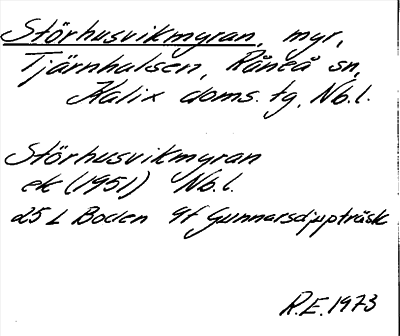 Störhusvikmyran, myr,
Tjärnhalsen, Råneå sn,
Kalix doms. tg, Nb.l.
Störhusvikmyran
ek (1951) Nb.l.
25 L Boden 9f Gunnarsdjupträsk
R.E. 1973